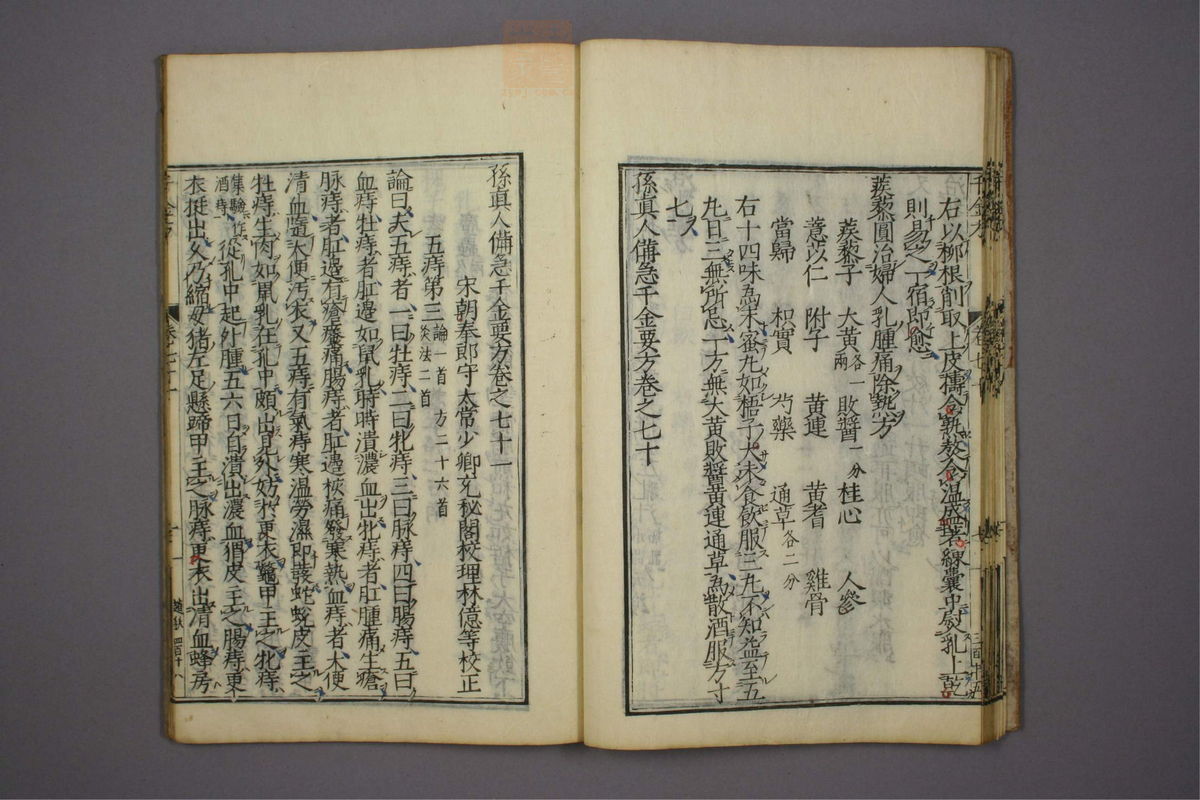 右以柳根削取上皮擣令熟熬令温盛著練囊中熨乳上乾
則易之一宿即愈
蒺藜圓治婦人乳腫痛除熱方
蒺藜子 大黄各一兩 敗醬一分 桂心 人參
薏苡仁 附子 黄連 黄耆 雞骨
當歸 枳實 芍藥 通草各二分
右十四味為末蜜丸如梧子大未食飲服三丸不知益至五
丸日三無所忌一方無大黄敗醬黄連通草為散酒服方寸
七
孫真人備急千金要方卷之七十
孫真人備急千金要方卷之七十一
宋朝奉郎守太常少卿充秘閣校理林億等校正
五痔第三 論一首 方二十六首 灸法二首
論曰夫五痔者一曰牡痔二曰牝痔三曰脉痔四曰腸痔五曰
血痔牡痔者肛邊如鼠乳時時潰濃血出牝痔者肛腫痛生瘡
脉痔者肛邊有瘡癢痛腸痔者肛邊核痛發寒熱血痔者大便
清血隨大便汚衣又五痔有氣痔寒温勞濕即發蛇蛻皮主之
牡痔生肉如鼠乳在孔中頗出見外妨於更衣鼈甲主之牝痔
集驗作酒痔 從孔中起外腫五六日自潰出濃血猬皮主之腸痔更
衣挺出久乃縮母猪左足懸蹄甲主之脉痔更衣出清血蜂房